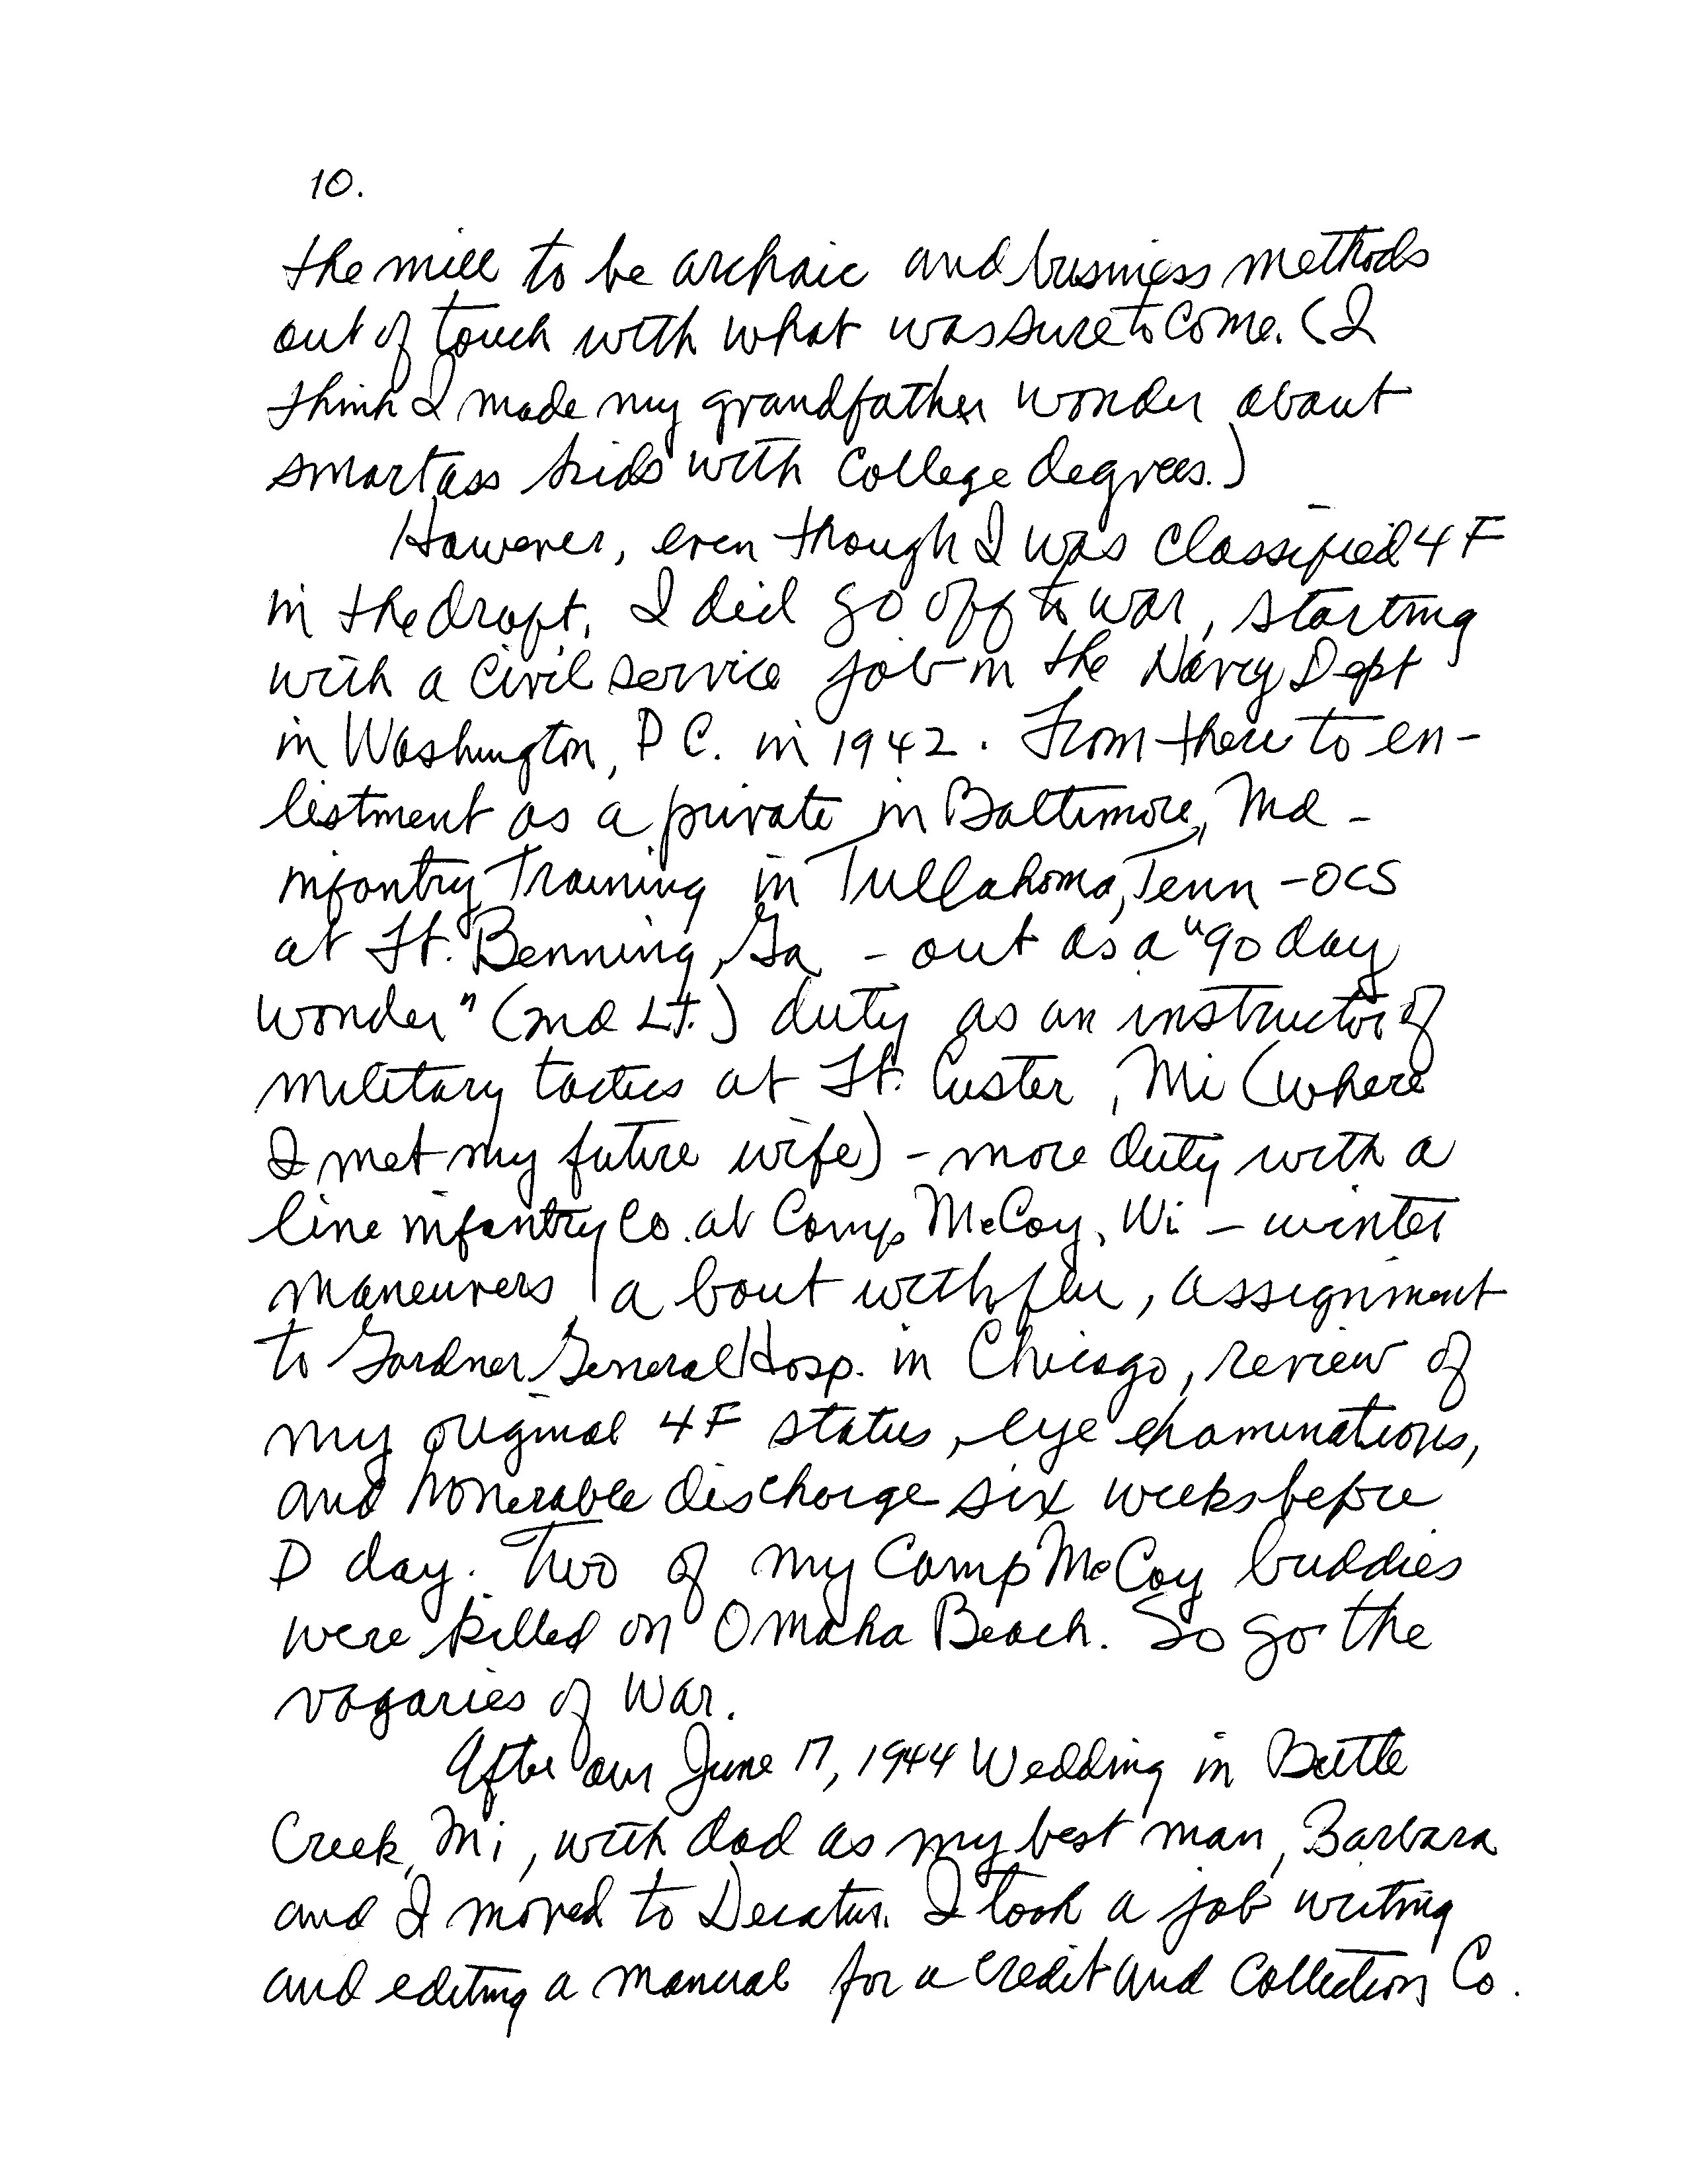 10.
the mill to be archaic and business methods
out of touch with what was sure to come. (I
think I made my grandfather wonder about
smartass kids with College degrees.)
However, even though I was classified 4F
in the draft, I did go off to war, starting
with a Civil Service job in the Navy Dept
in Washington, D C. in 1942. From there to en-
listment as a private in Baltimore, Md -
infantry Training in Tullahoma, Tenn - OCS
at Ft. Benning, Ga - out as a "90 day
wonder" (2nd Lt.) duty as an instructor of
military tactics at Ft. Custer, Mi (where
I met my future wife) - more duty with a
line infantry Co. at Camp McCoy, Wi - winter
maneuvers, a bout with flu, assignment
to Gardner General Hosp. in Chicago, review of
my original 4F status, eye examinations,
and honerable discharge six weeks before
D day. Two of my Camp McCoy buddies
were killed on Omaha Beach. So go the
vagaries of War.
After our June 17, 1944 Wedding in Battle
Creek, Mi, with dad as my best man, Barbara
and I moved to Decatur. I took a job writing
and editing a manual for a Credit and Collection Co.